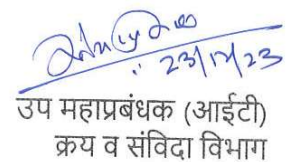 23/12/23
उप महाप्रबंधक (आईटी)
क्रय व संविदा विभाग